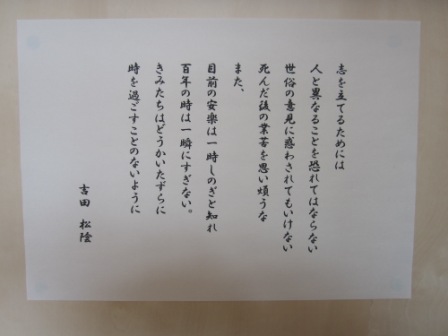 志を立てるためには
人と異なることを恐れてはならない
世俗の意見に惑わされてもいけない
死んだ後の業苦を思い煩うな
また、
目前の安楽は一時しのぎと知れ
百年の時は一瞬にすぎない。
きみたちはどうかいたずらに
時を過ごすことのないように
吉田 松陰